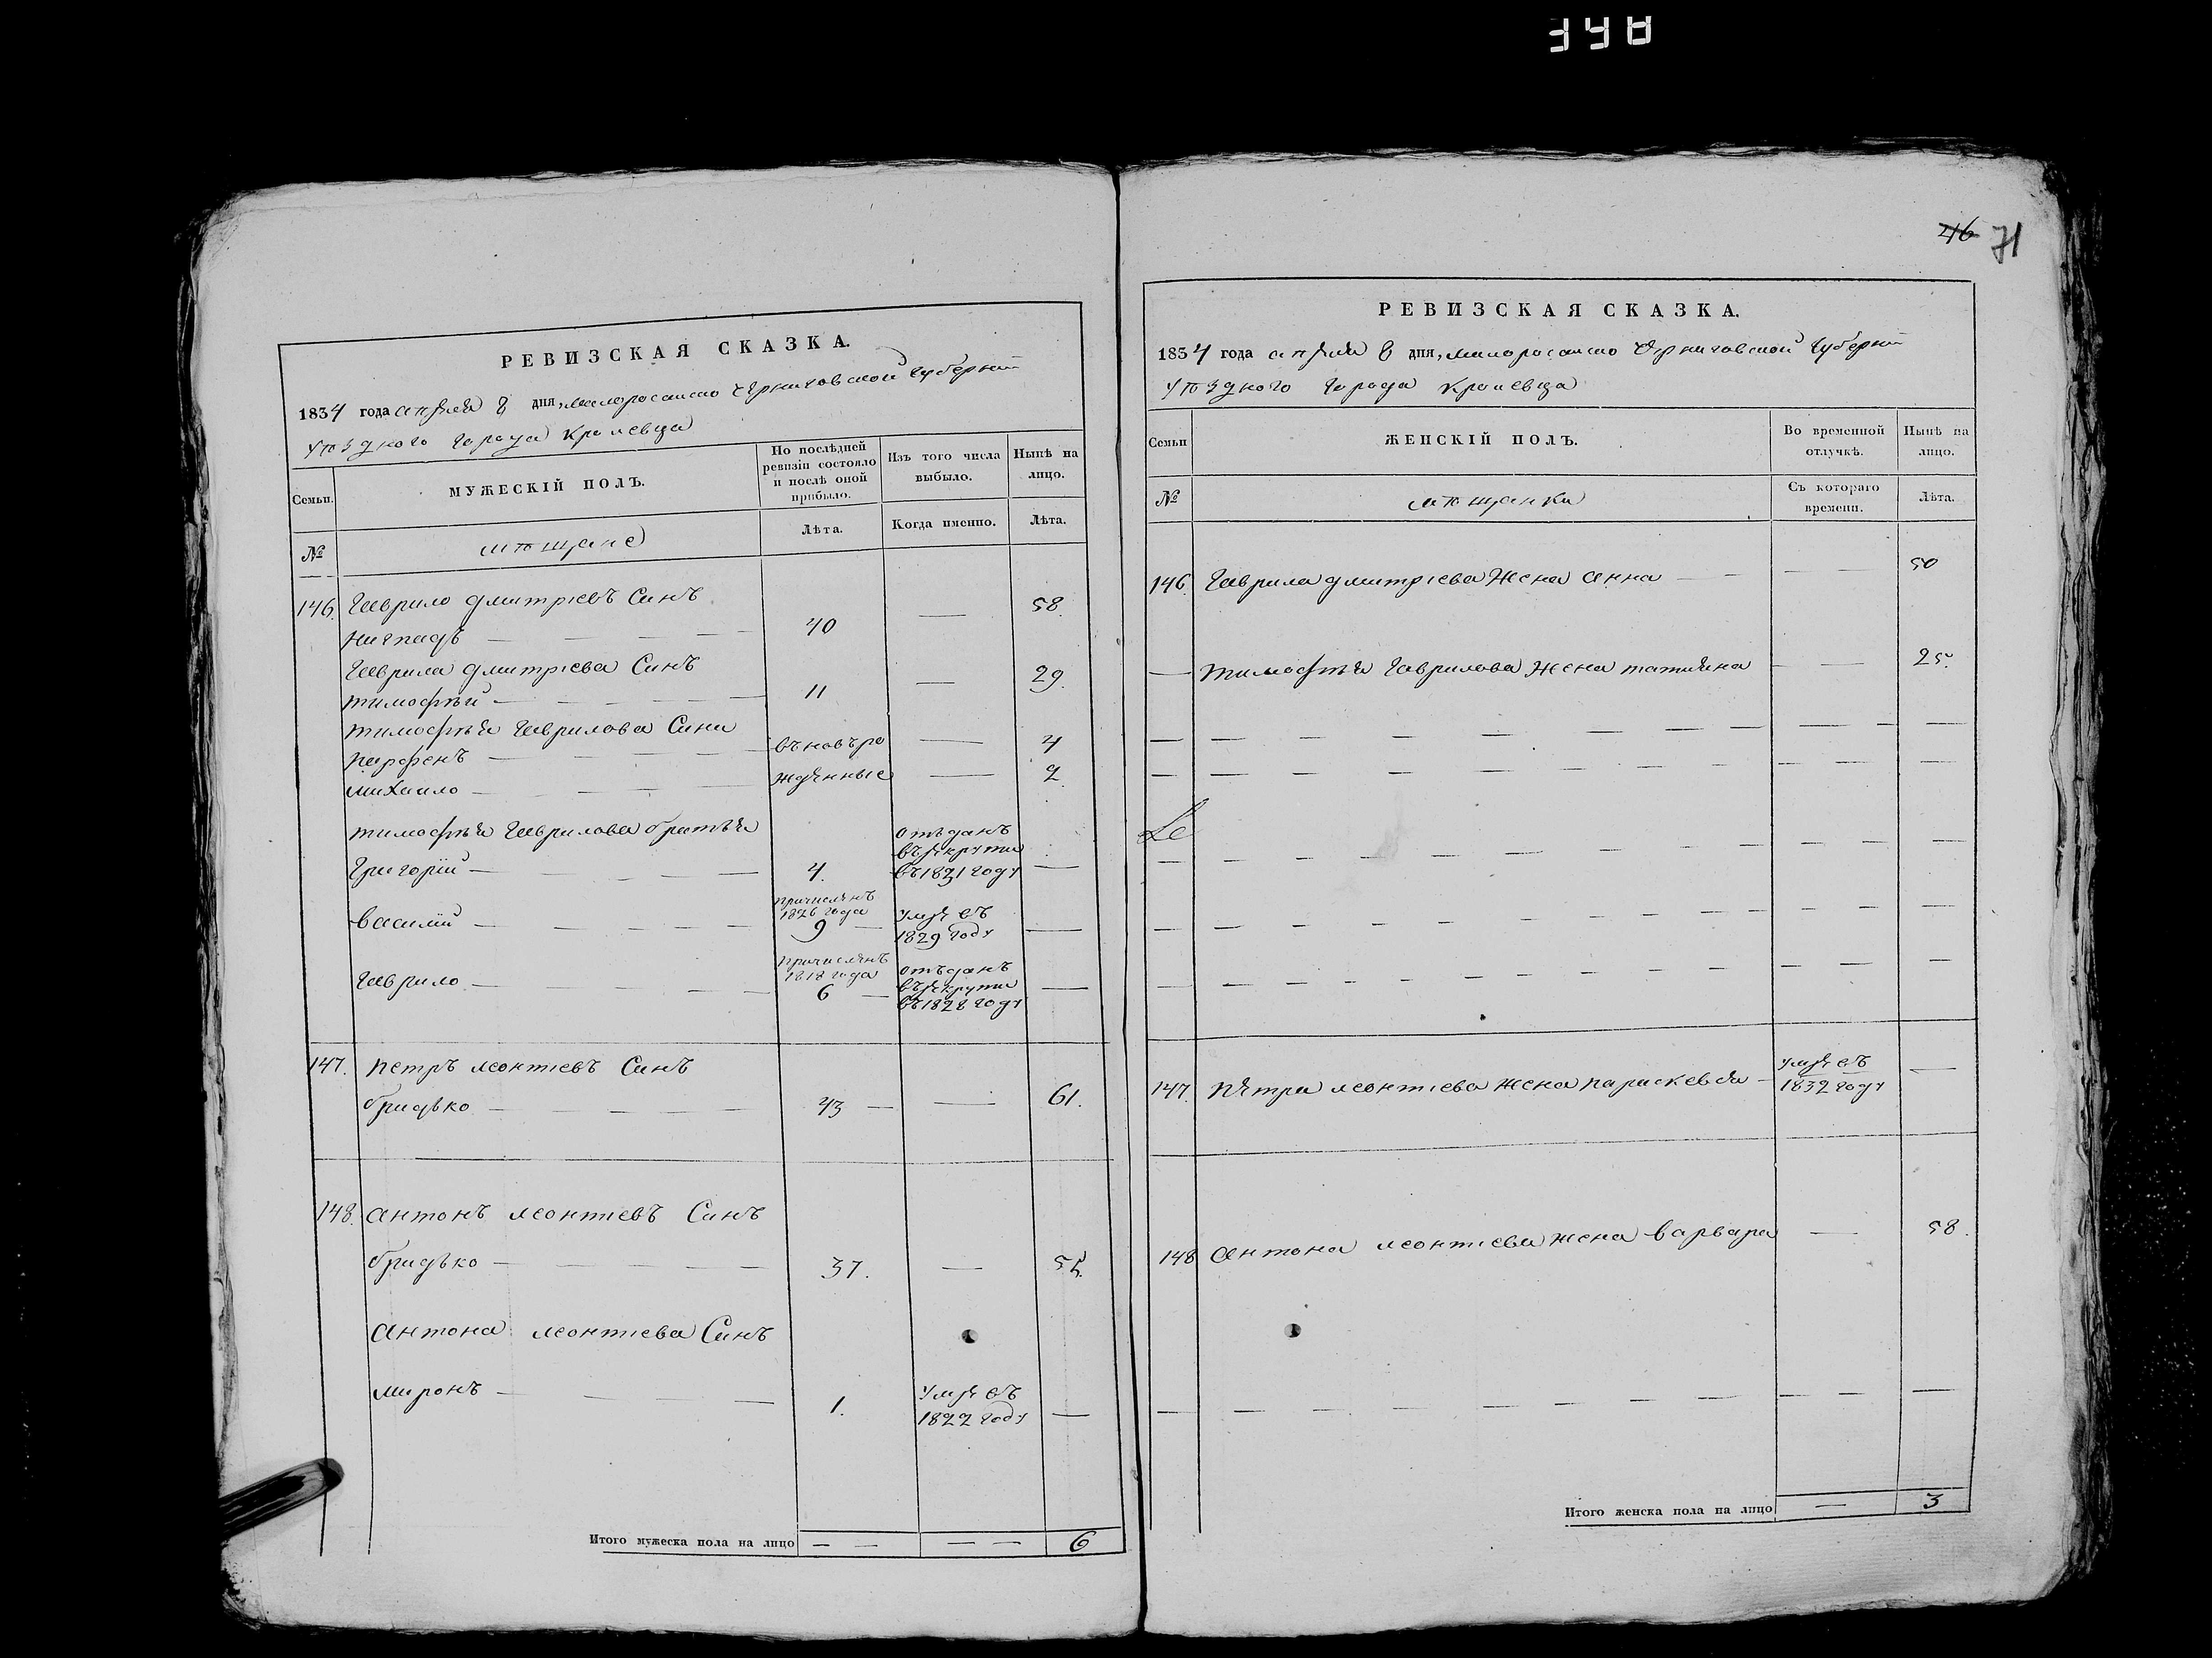 348
46 71
РЕВИЗСКАЯ СКАЗКА.
1834 года апреля 8 дня, малоросийско Черниговской губернии
уѣздного города Кролевца
Семьи.
МУЖЕСКІЙ ПОЛЪ.
По послѣдней ревизіи состояло и послѣ оной прибыло.
Изъ того числа выбыло.
Нынѣ на лицо.
№
мѣщане
Лѣта.
Когда именно.
Лѣта.
146. Гаврило Дмитріевъ Синъ
40 — 58.
Гаврила Дмитріева Синъ
Тимофѣй — 11 — 29.
Тимофѣя Гаврилова Сини
Парфенъ — въновъро — 4
Михайло — жденные — 2
Тимофѣя Гаврилова братья
Григорій — 4. отъданъ въ рекрути въ 1831 году —
Василій — причисленъ 1826 года 9 — умре въ 1829 году —
Гаврило — причисленъ 1818 года 6 — отъданъ въ рекрути въ 1828 году —
147. Петръ Леонтіевъ Синъ
Бридько — 43 — 61.
148. Антонъ Леонтіевъ Синъ
Бридько — 37. — 55.
Антона Леонтіева Синъ
Миронъ — 1. умре въ 1822 году —
Итого мужеска пола на лицо — — — — 6
РЕВИЗСКАЯ СКАЗКА.
1834 года апреля 8 дня, малоросийско Черниговской губернии
уѣздного города Кролевца
Семьи
ЖЕНСКІЙ ПОЛЪ.
Во временной отлучкѣ.
Нынѣ на лицо.
№
мѣщанки
Съ котораго времени.
Лѣта.
146. Гаврила Дмитріева Жена Анна — — 50
— Тимофѣя Гаврилова Жена Татияна — — 25.
147. Петра Леонтіева жена Параскевея — умре въ 1832 году —
148 Антона Леонтіева жена Варвара — 58.
Итого женска пола на лицо — 3